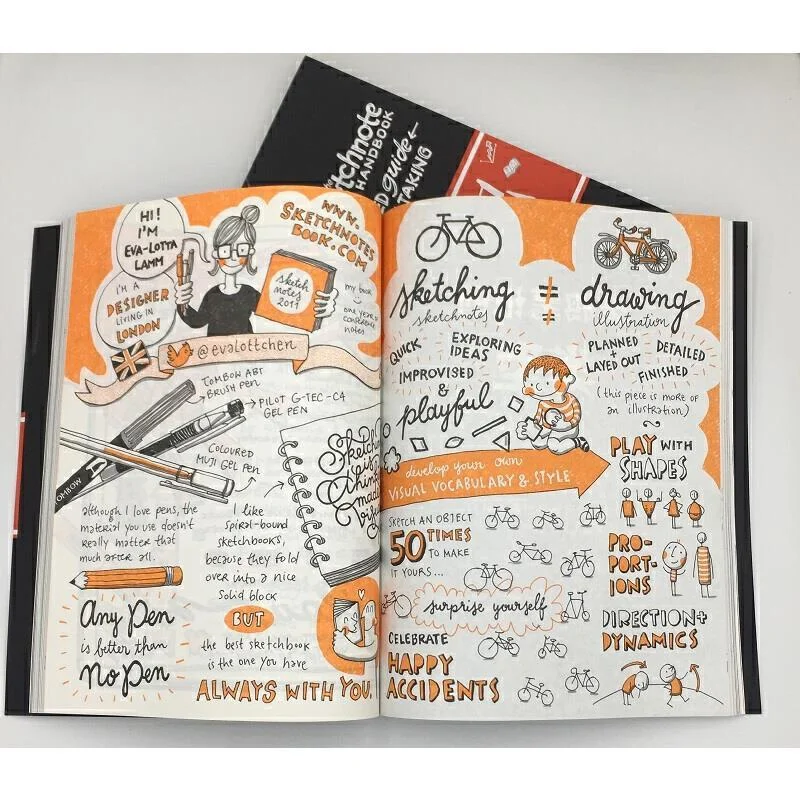 etchnote
HANDBOOK
D guide
TAKING
HI!
I'M
EVA-LOTTA
LAMM
I'M A
DESIGNER
LIVING IN
LONDON
WWW.
SKETCHNOTES
BOOK.COM
sketch
notes
2011
my book
one year's
conference
notes
@evalottchen
TOMBOW ABT
BRUSH PEN
PILOT G-TEC-C4
GEL PEN
COLOURED
MUJI GEL PEN
TOMBOW
although I love pens, the
material you use doesn't
really matter that
much after all.
Any Pen
is better than
No Pen
I like
spiral-bound
sketchbooks,
because they fold
over into a nice
solid block
BUT
the best sketchbook
is the one you have
ALWAYS WITH YOU.
sketching
sketchnotes
≠
drawing
illustration
QUICK
EXPLORING
IDEAS
IMPROVISED
&
playful
PLANNED
+
LAYED OUT
DETAILED
FINISHED
(this piece is more of
an illustration)
develop your own
VISUAL VOCABULARY & STYLE
SKETCH AN OBJECT
50 TIMES
TO MAKE
IT YOURS...
surprise yourself
CELEBRATE
HAPPY
ACCIDENTS
PLAY WITH
SHAPES
PRO-
PORT-
IONS
DIRECTION+
DYNAMICS